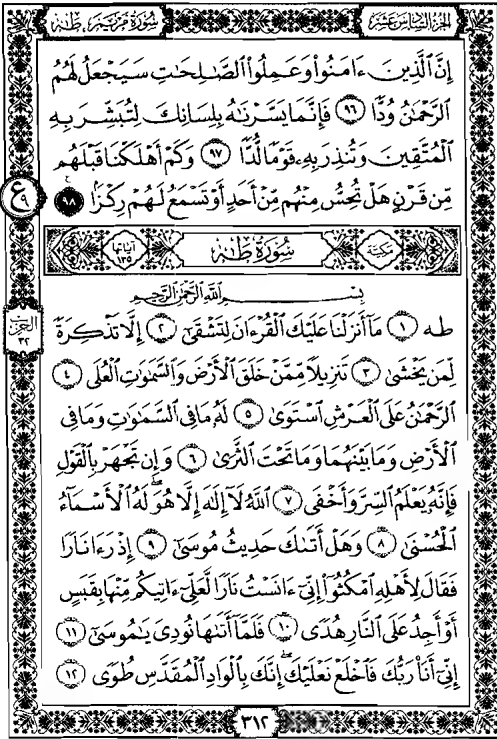 الجزء السادس عشر
سورة مريم، طه
إِنَّ ٱلَّذِينَ ءَامَنُوا۟ وَعَمِلُوا۟ ٱلصَّـٰلِحَـٰتِ سَيَجْعَلُ لَهُمُ
ٱلرَّحْمَـٰنُ وُدًّا ٩٦ فَإِنَّمَا يَسَّرْنَـٰهُ بِلِسَانِكَ لِتُبَشِّرَ بِهِ
ٱلْمُتَّقِينَ وَتُنذِرَ بِهِۦ قَوْمًا لُّدًّا ٩٧ وَكَمْ أَهْلَكْنَا قَبْلَهُم
مِّن قَرْنٍ هَلْ تُحِسُّ مِنْهُم مِّنْ أَحَدٍ أَوْ تَسْمَعُ لَهُمْ رِكْزًۢا ٩٨
ع ٩
مكية سُورَةُ طه آياتها ١٣٥
بِسْمِ ٱللَّهِ ٱلرَّحْمَـٰنِ ٱلرَّحِيمِ
طه ١ مَآ أَنزَلْنَا عَلَيْكَ ٱلْقُرْءَانَ لِتَشْقَىٰٓ ٢ إِلَّا تَذْكِرَةً
الحزب ٣٢
لِّمَن يَخْشَىٰ ٣ تَنزِيلًا مِّمَّنْ خَلَقَ ٱلْأَرْضَ وَٱلسَّمَـٰوَٰتِ ٱلْعُلَى ٤
ٱلرَّحْمَـٰنُ عَلَى ٱلْعَرْشِ ٱسْتَوَىٰ ٥ لَهُۥ مَا فِى ٱلسَّمَـٰوَٰتِ وَمَا فِى
ٱلْأَرْضِ وَمَا بَيْنَهُمَا وَمَا تَحْتَ ٱلثَّرَىٰ ٦ وَإِن تَجْهَرْ بِٱلْقَوْلِ
فَإِنَّهُۥ يَعْلَمُ ٱلسِّرَّ وَأَخْفَى ٧ ٱللَّهُ لَآ إِلَـٰهَ إِلَّا هُوَ ۖ لَهُ ٱلْأَسْمَآءُ
ٱلْحُسْنَىٰ ٨ وَهَلْ أَتَىٰكَ حَدِيثُ مُوسَىٰٓ ٩ إِذْ رَءَا نَارًا
فَقَالَ لِأَهْلِهِ ٱمْكُثُوٓا۟ إِنِّىٓ ءَانَسْتُ نَارًا لَّعَلِّىٓ ءَاتِيكُم مِّنْهَا بِقَبَسٍ
أَوْ أَجِدُ عَلَى ٱلنَّارِ هُدًى ١٠ فَلَمَّآ أَتَىٰهَا نُودِىَ يَـٰمُوسَىٰٓ ١١
إِنِّىٓ أَنَا۠ رَبُّكَ فَٱخْلَعْ نَعْلَيْكَ ۖ إِنَّكَ بِٱلْوَادِ ٱلْمُقَدَّسِ طُوًى ١٢
٣١٢